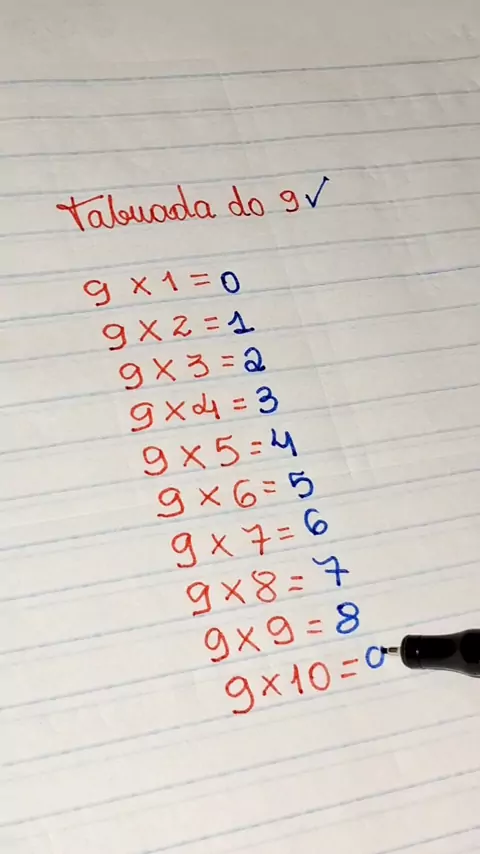 Tabuada do 9✓
9 x 1 = 0
9 x 2 = 1
9 x 3 = 2
9 x 4 = 3
9 x 5 = 4
9 x 6 = 5
9 x 7 = 6
9 x 8 = 7
9 x 9 = 8
9 x 10 = 0